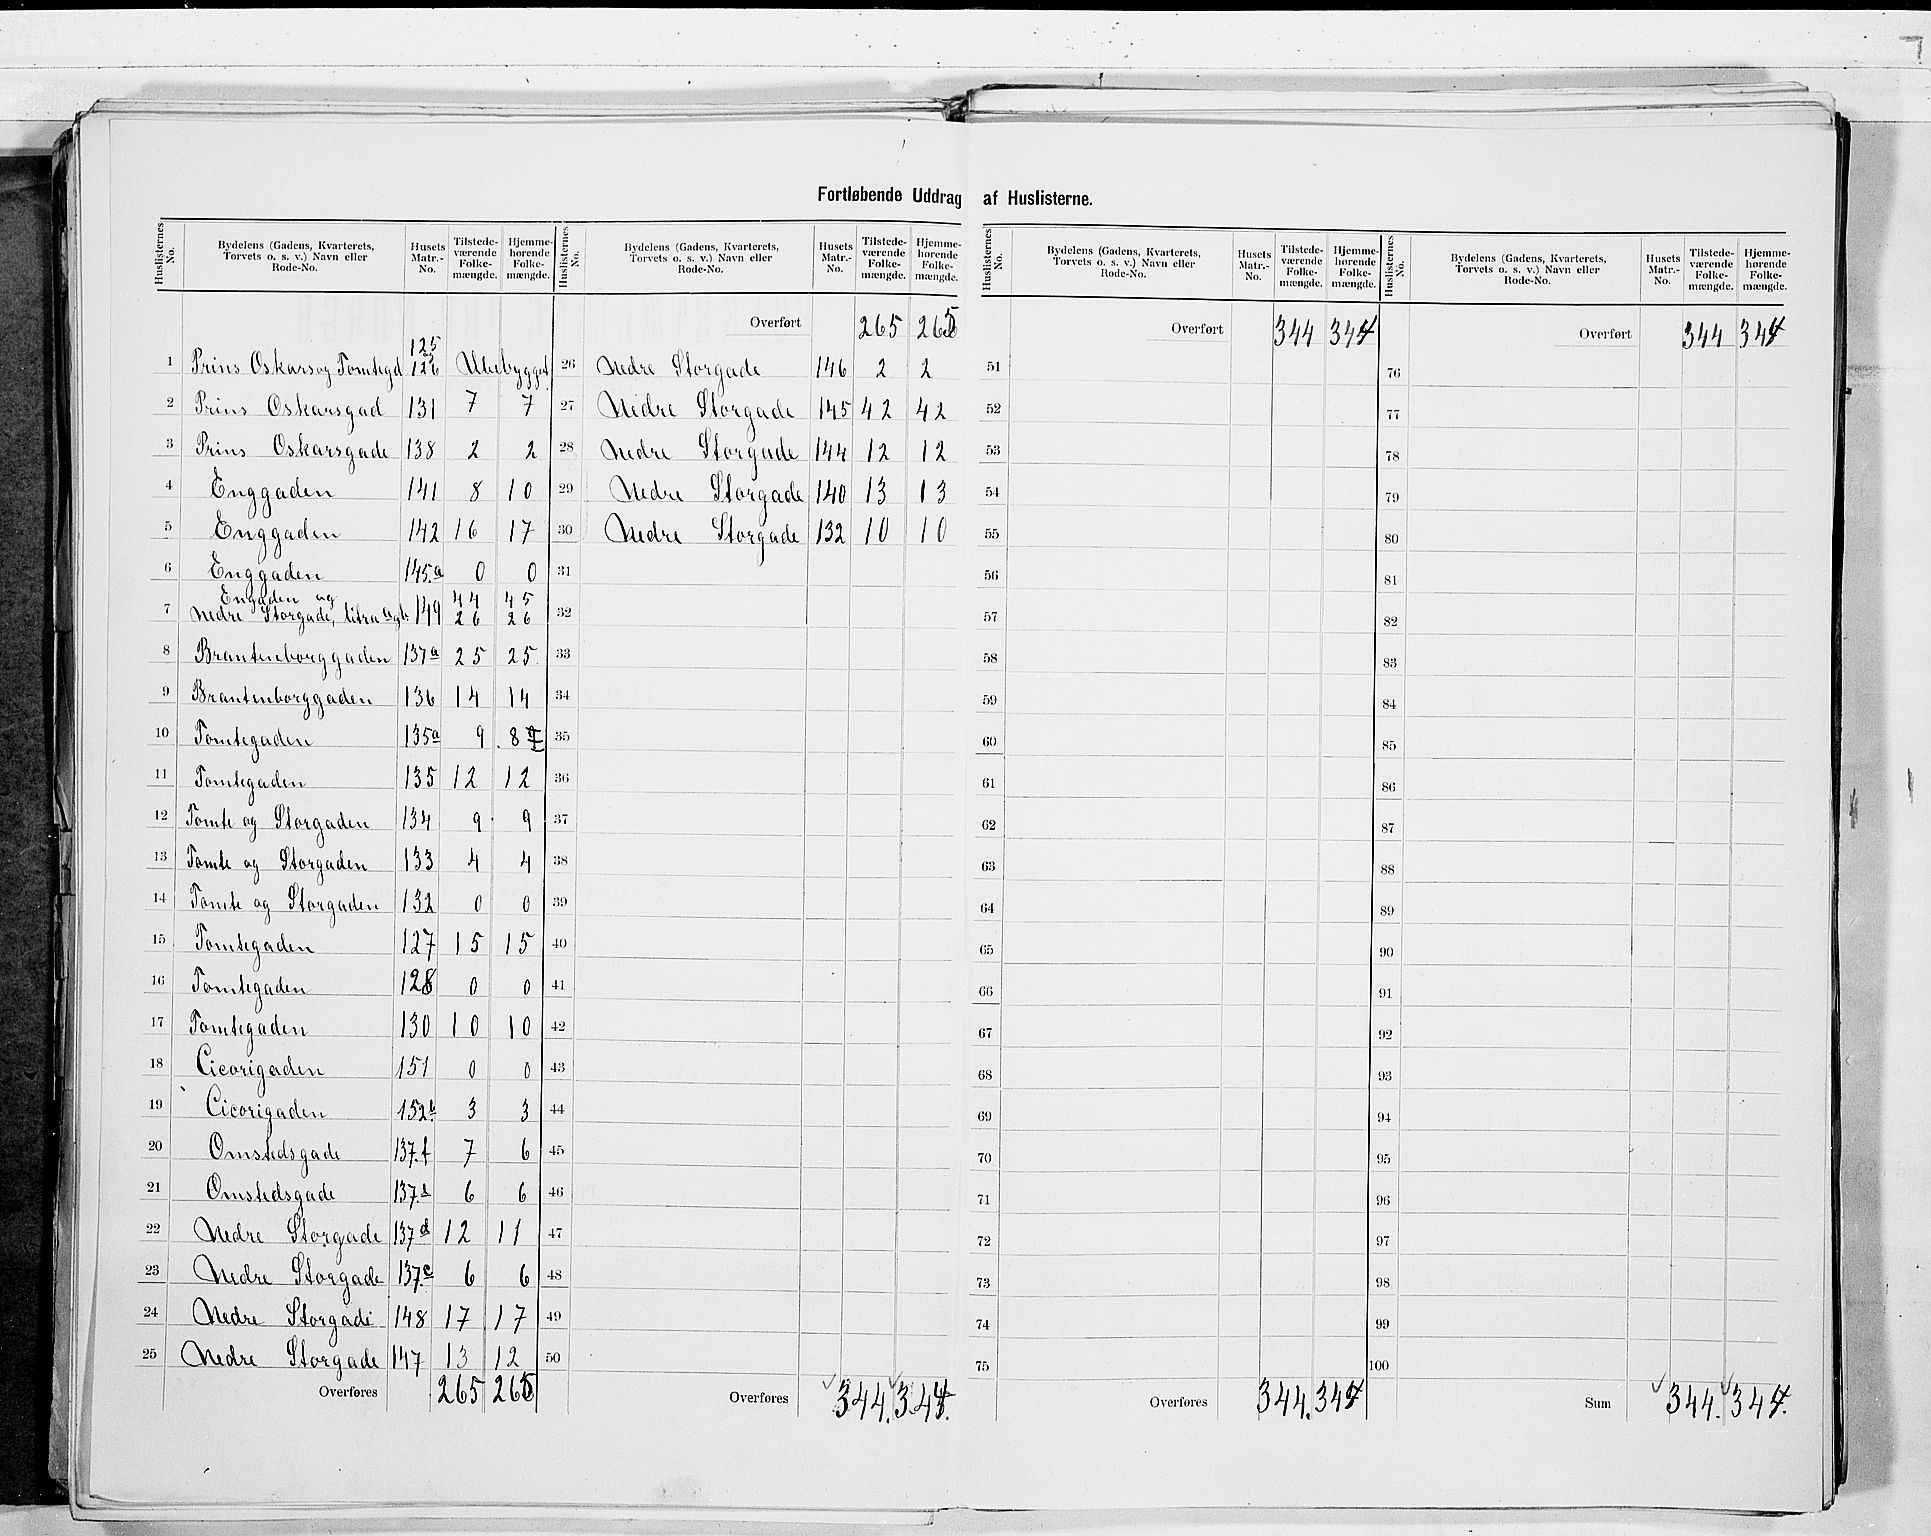 Fortløbende Uddrag af Huslisterne.
Huslisternes No. | Bydelens (Gadens, Kvarterets, Torvets o. s. v.) Navn eller Rode-No. | Husets Matr.-No. | Tilstedeværende Folkemængde. | Hjemmehørende Folkemængde.
1 Prins Oskars og Tomtegd 125 og 126 Ubebygget
2 Prins Oskarsgad 131 7 7
3 Prins Oskarsgade 138 2 2
4 Enggaden 141 8 10
5 Enggaden 142 16 17
6 Enggaden 145.a 0 0
7 Engaden og 44 45
Nedre Storgade, litra a og b. 149 26 26
8 Brantenborggaden 137a 25 25.
9 Brantenborggaden 136 14 14
10 Tomtegaden 135a 9 8
11 Tomtegaden 135 12 12
12 Tomte og Storgaden 134 9 9
13 Tomte og Storgaden 133 4 4
14 Tomte og Storgaden 132 0 0
15 Tomtegaden 127 15 15
16 Tomtegaden 128 0 0
17 Tomtegaden 130 10 10
18 Cicorigaden 151 0 0
19 Cicorigaden 152b. 3 3
20 Omstedsgade 137.f 7 6
21 Omstedsgade 137. 6 6
22 Nedre Storgade 137d 12 11
23 Nedre Storgade 137.c 6 6
24 Nedre Storgade 148 17 17
25 Nedre Storgade 147 13 12
Overføres 265 265
Huslisternes No. | Bydelens (Gadens, Kvarterets, Torvets o. s. v.) Navn eller Rode-No. | Husets Matr.-No. | Tilstedeværende Folkemængde. | Hjemmehørende Folkemængde.
Overført 265 265
26 Nedre Storgade 146 2 2
27 Nedre Storgade 145 42 42
28 Nedre Storgade 144 12 12
29 Nedre Storgade 140 13 13
30 Nedre Storgade 132 10 10
31
32
33
34
35
36
37
38
39
40
41
42
43
44
45
46
47
48
49
50
Overføres 344. 344.
Huslisternes No. | Bydelens (Gadens, Kvarterets, Torvets o. s. v.) Navn eller Rode-No. | Husets Matr.-No. | Tilstedeværende Folkemængde. | Hjemmehørende Folkemængde.
Overført 344 344
51
52
53
54
55
56
57
58
59
60
61
62
63
64
65
66
67
68
69
70
71
72
73
74
75
Overføres 344. 344
Huslisternes No. | Bydelens (Gadens, Kvarterets, Torvets o. s. v.) Navn eller Rode-No. | Husets Matr.-No. | Tilstedeværende Folkemængde. | Hjemmehørende Folkemængde.
Overført 344 344
76
77
78
79
80
81
82
83
84
85
86
87
88
89
90
91
92
93
94
95
96
97
98
99
100
Sum 344. 344.